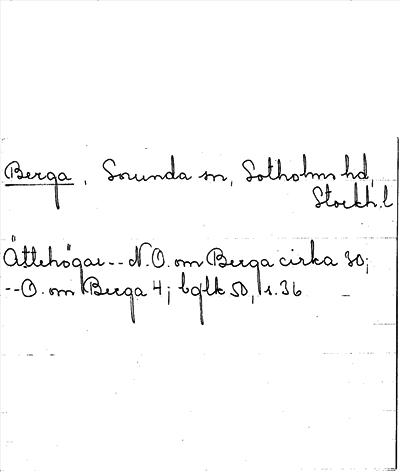 Berga, Sorunda sn, Sotholms hd,
Stockh.l
Ättehögar -- N.O. om Berga cirka 30;
-- O. om Berga 4; bglk 50, s. 36